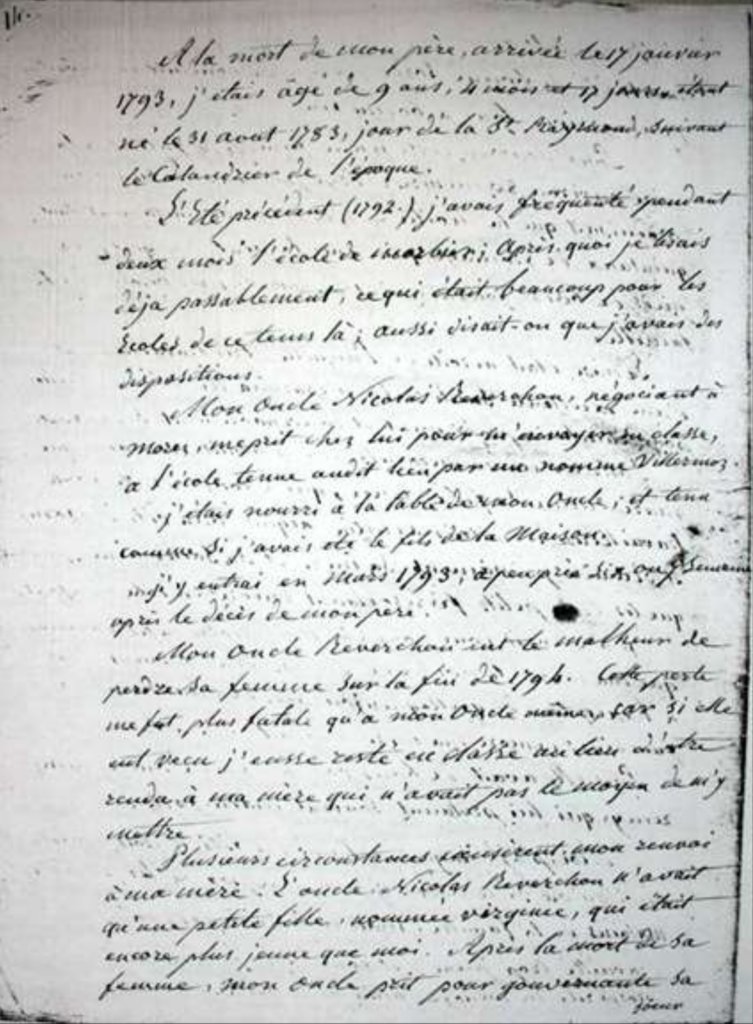 14.
A la mort de mon père, arrivée le 17 janvier
1793, j'étais âgé de 9 ans, 4 mois et 17 jours, étant
né le 31 aout 1783, jour de la St Raymond, suivant
le Calandrier de l'époque.
L'Eté précédent (1792.) j'avais fréquenté pendant
deux mois l'école de morbier; Après quoi je lisais
déja passablement, ce qui était beaucoup pour les
Ecoles de ce tems là; aussi disait-on que j'avais des
dispositions.
Mon Oncle Nicolas Reverchon, négociant à
Morez, me prit chez lui pour m'envoyer en classe,
a l'école tenue audit lieu par un nommé Villermoz.
j'étais nourri à la table de mon Oncle, et tenu
comme si j'avais été le fils de la Maison.
j'y entrai en Mars 1793, a peu près six ou 7 Semaines
après le décès de mon père.
Mon Oncle Reverchon eut le malheur de
perdre sa femme sur la fin de 1794. Cette perte
me fut plus fatale qu'a mon Oncle même, car si elle
eut vecu j'eusse resté en classe au lieu d'être
rendu à ma mère qui n'avait pas le moyen de m'y
mettre.
Plusieurs circonstances causèrent mon renvoi
à ma mère. L'oncle Nicolas Reverchon n'avait
qu'une petite fille, nommée virginie, qui était
encore plus jeune que moi. Après la mort de sa
femme, mon Oncle prit pour gouvernante sa
soeur